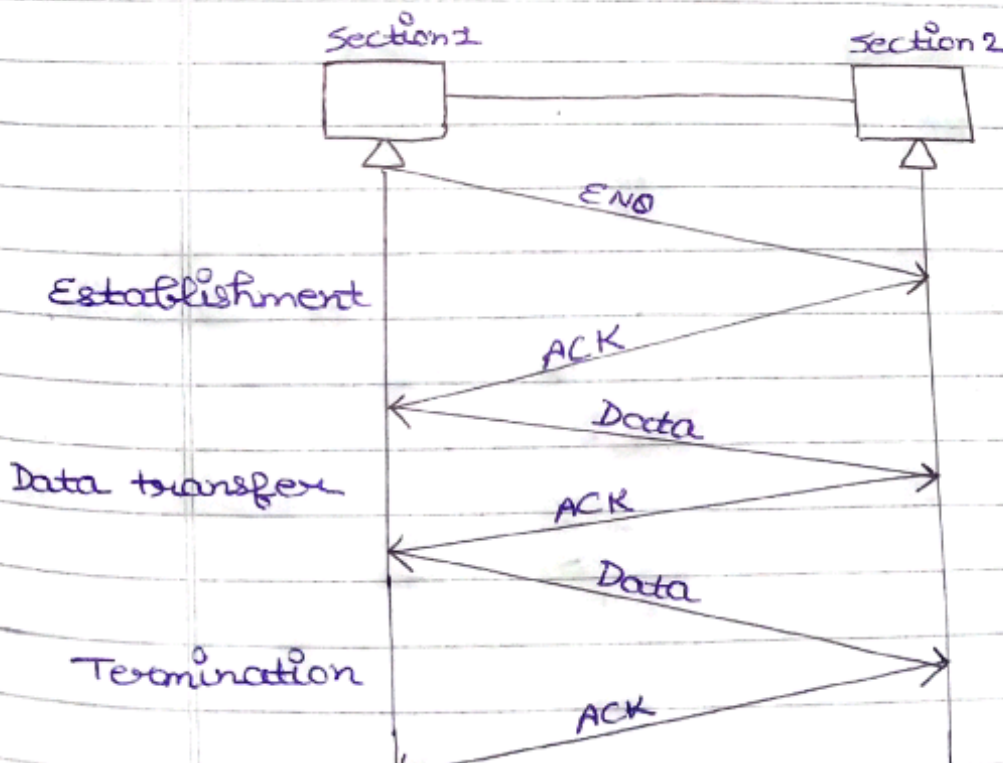 Section 1
Section 2
ENQ
Establishment
ACK
Data
Data transfer
ACK
Data
Termination
ACK